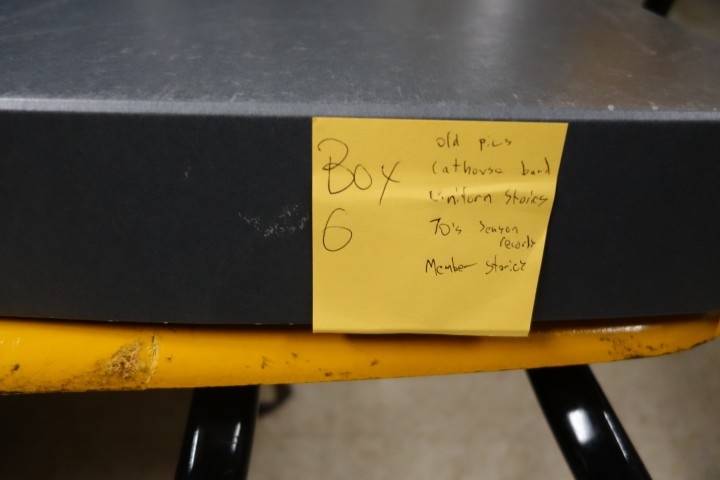 Box
6
old pics
Cathouse band
Uniform Stories
70's Season
records
Member Stories